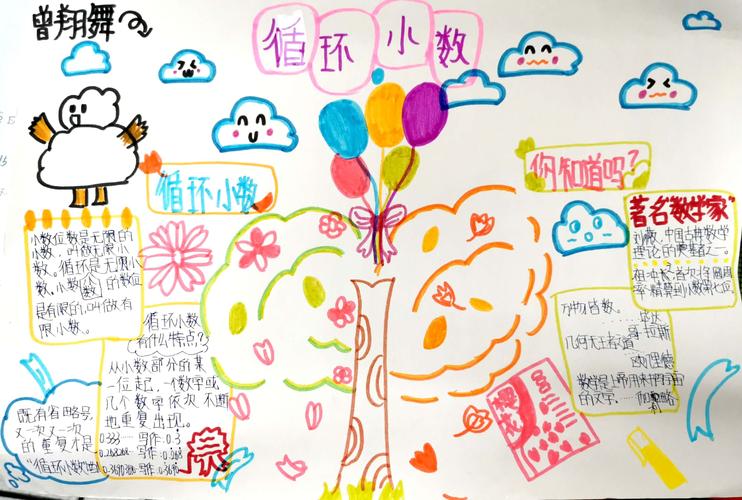 曾翔舞
循环小数
循环小数
你知道吗?
小数位数是无限的
小数,叫做无限小
数。循环是无限小
数。小数部分的数位
是有限的,叫做有
限小数。
循环小数
有什么特点?
从小数部分的某
一位起,一个数字或
几个数字依次不断
地重复出现。
0.333…… 写作:0.3
既有省略号,
又一次又一次
的重复才是
"循环小数"
著名数学家
刘徽,中国古典数学
理论的奠基之一。
祖冲之首次将圆周
率精算到小数第七位。
万物皆数。
……毕达
哥拉斯
几何无王者之道
欧几里德
数学是上帝用来书写宇宙
的文字。……伽利略